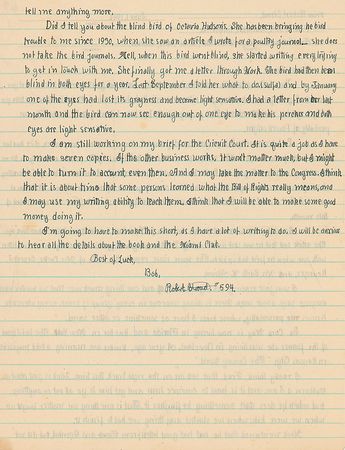 tell me anything more.
Did I tell you about the blind bird of Octavia Hudsons. She has been bringing he bird
trouble to me since 1930, when she saw an article I wrote for a poultry journal. she does
not take the bird journals. Well, when this bird went blind, she started writing everything
to get in touch with me. She finally got me a letter through York. She bird had then been
blind in both eyes for a year. Last September I told her what to do, and by January
one of the eyes had lost its grayness and become light sensitive. I had a letter from her last
month and the bird can now see enough out of one eye to make his perches and both
eyes are light sensitive.
I am still working on my brief for the Circuit Court. It is quite a job as I have
to make seven copies. If this other business works, it won't matter much, but I might
be able to turn it to account, even then. And I may take the matter to the Congress. I think
that it is about time that some persons learned what the Bill of Rights really means, and
I may use my writing ability to teach them. I think that I will be able to make some good
money doing it.
I'm going to have to make this short, as I have a lot of writing to do. I will be anxious
to hear all the details about the book and the Miami Club.
Best of Luck,
Bob,
Robert Stroud, #594.